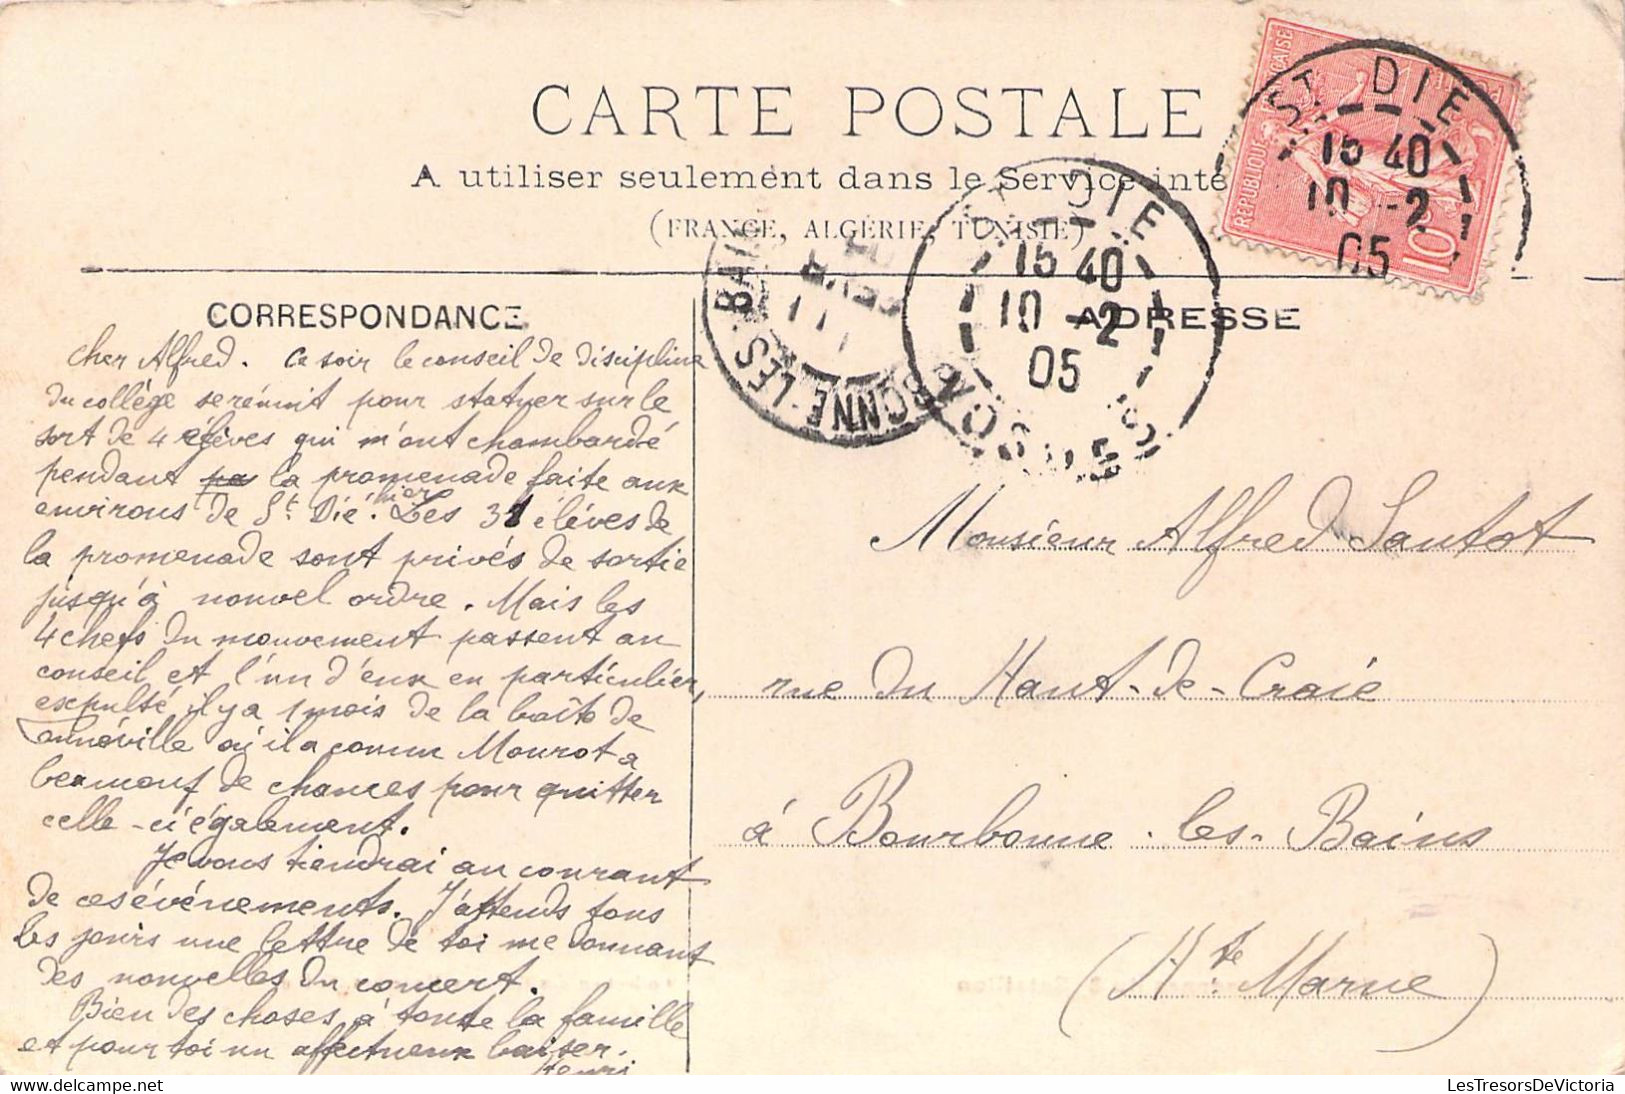 CARTE POSTALE
A utiliser seulement dans le Service inté
(FRANCE, ALGÉRIE, TUNISIE)
REPUBLIQUE FRANÇAISE
10c
ST DIE
15 40
10 -2
05
ST DIE
15 40
10 -2
05
VOSGES
BOURBONNE-LES-BAINS
CORRESPONDANCE
ADRESSE
Cher Alfred. Ce soir le conseil de discipline
du collège se réunit pour statuer sur le
sort de 4 élèves qui m'ont chambardé
pendant la promenade faite aux
environs de St. Dié hier. Les 31 élèves de
la promenade sont privés de sortie
jusqu'à nouvel ordre. Mais les
4 chefs du mouvement passent au
conseil et l'un d'eux en particulier,
expulsé il y a 1 mois de la boîte de
où il a comme Mourot a
beaucoup de chances pour quitter
celle-ci également.
Je vous tiendrai au courant
de ces événements. J'attends tous
les jours une lettre de toi me donnant
des nouvelles du concert.
Bien des choses à toute la famille
et pour toi un affectueux baiser.
Henri
Monsieur Alfred Sautot
rue du Haut-de-Craie
à Bourbonne-les-Bains
(Hte Marne)
LesTresorsDeVictoria